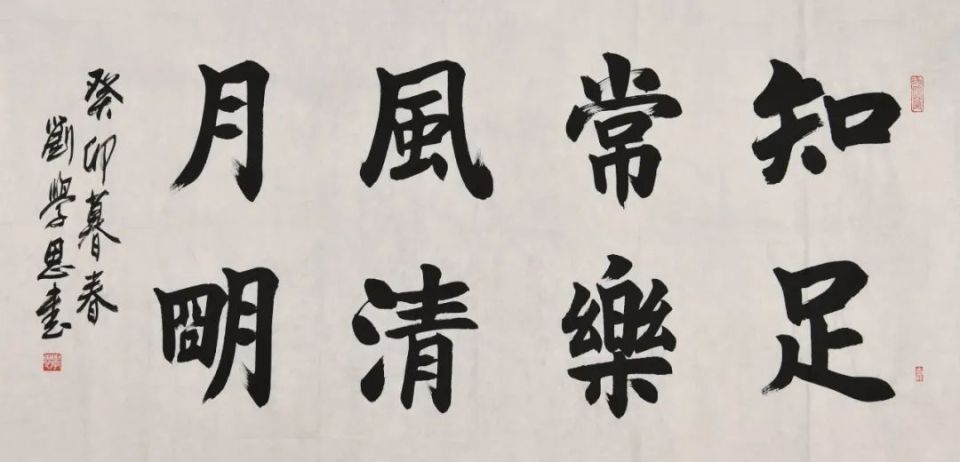 知足
常樂
風清
月明
癸卯暮春
劉學思書